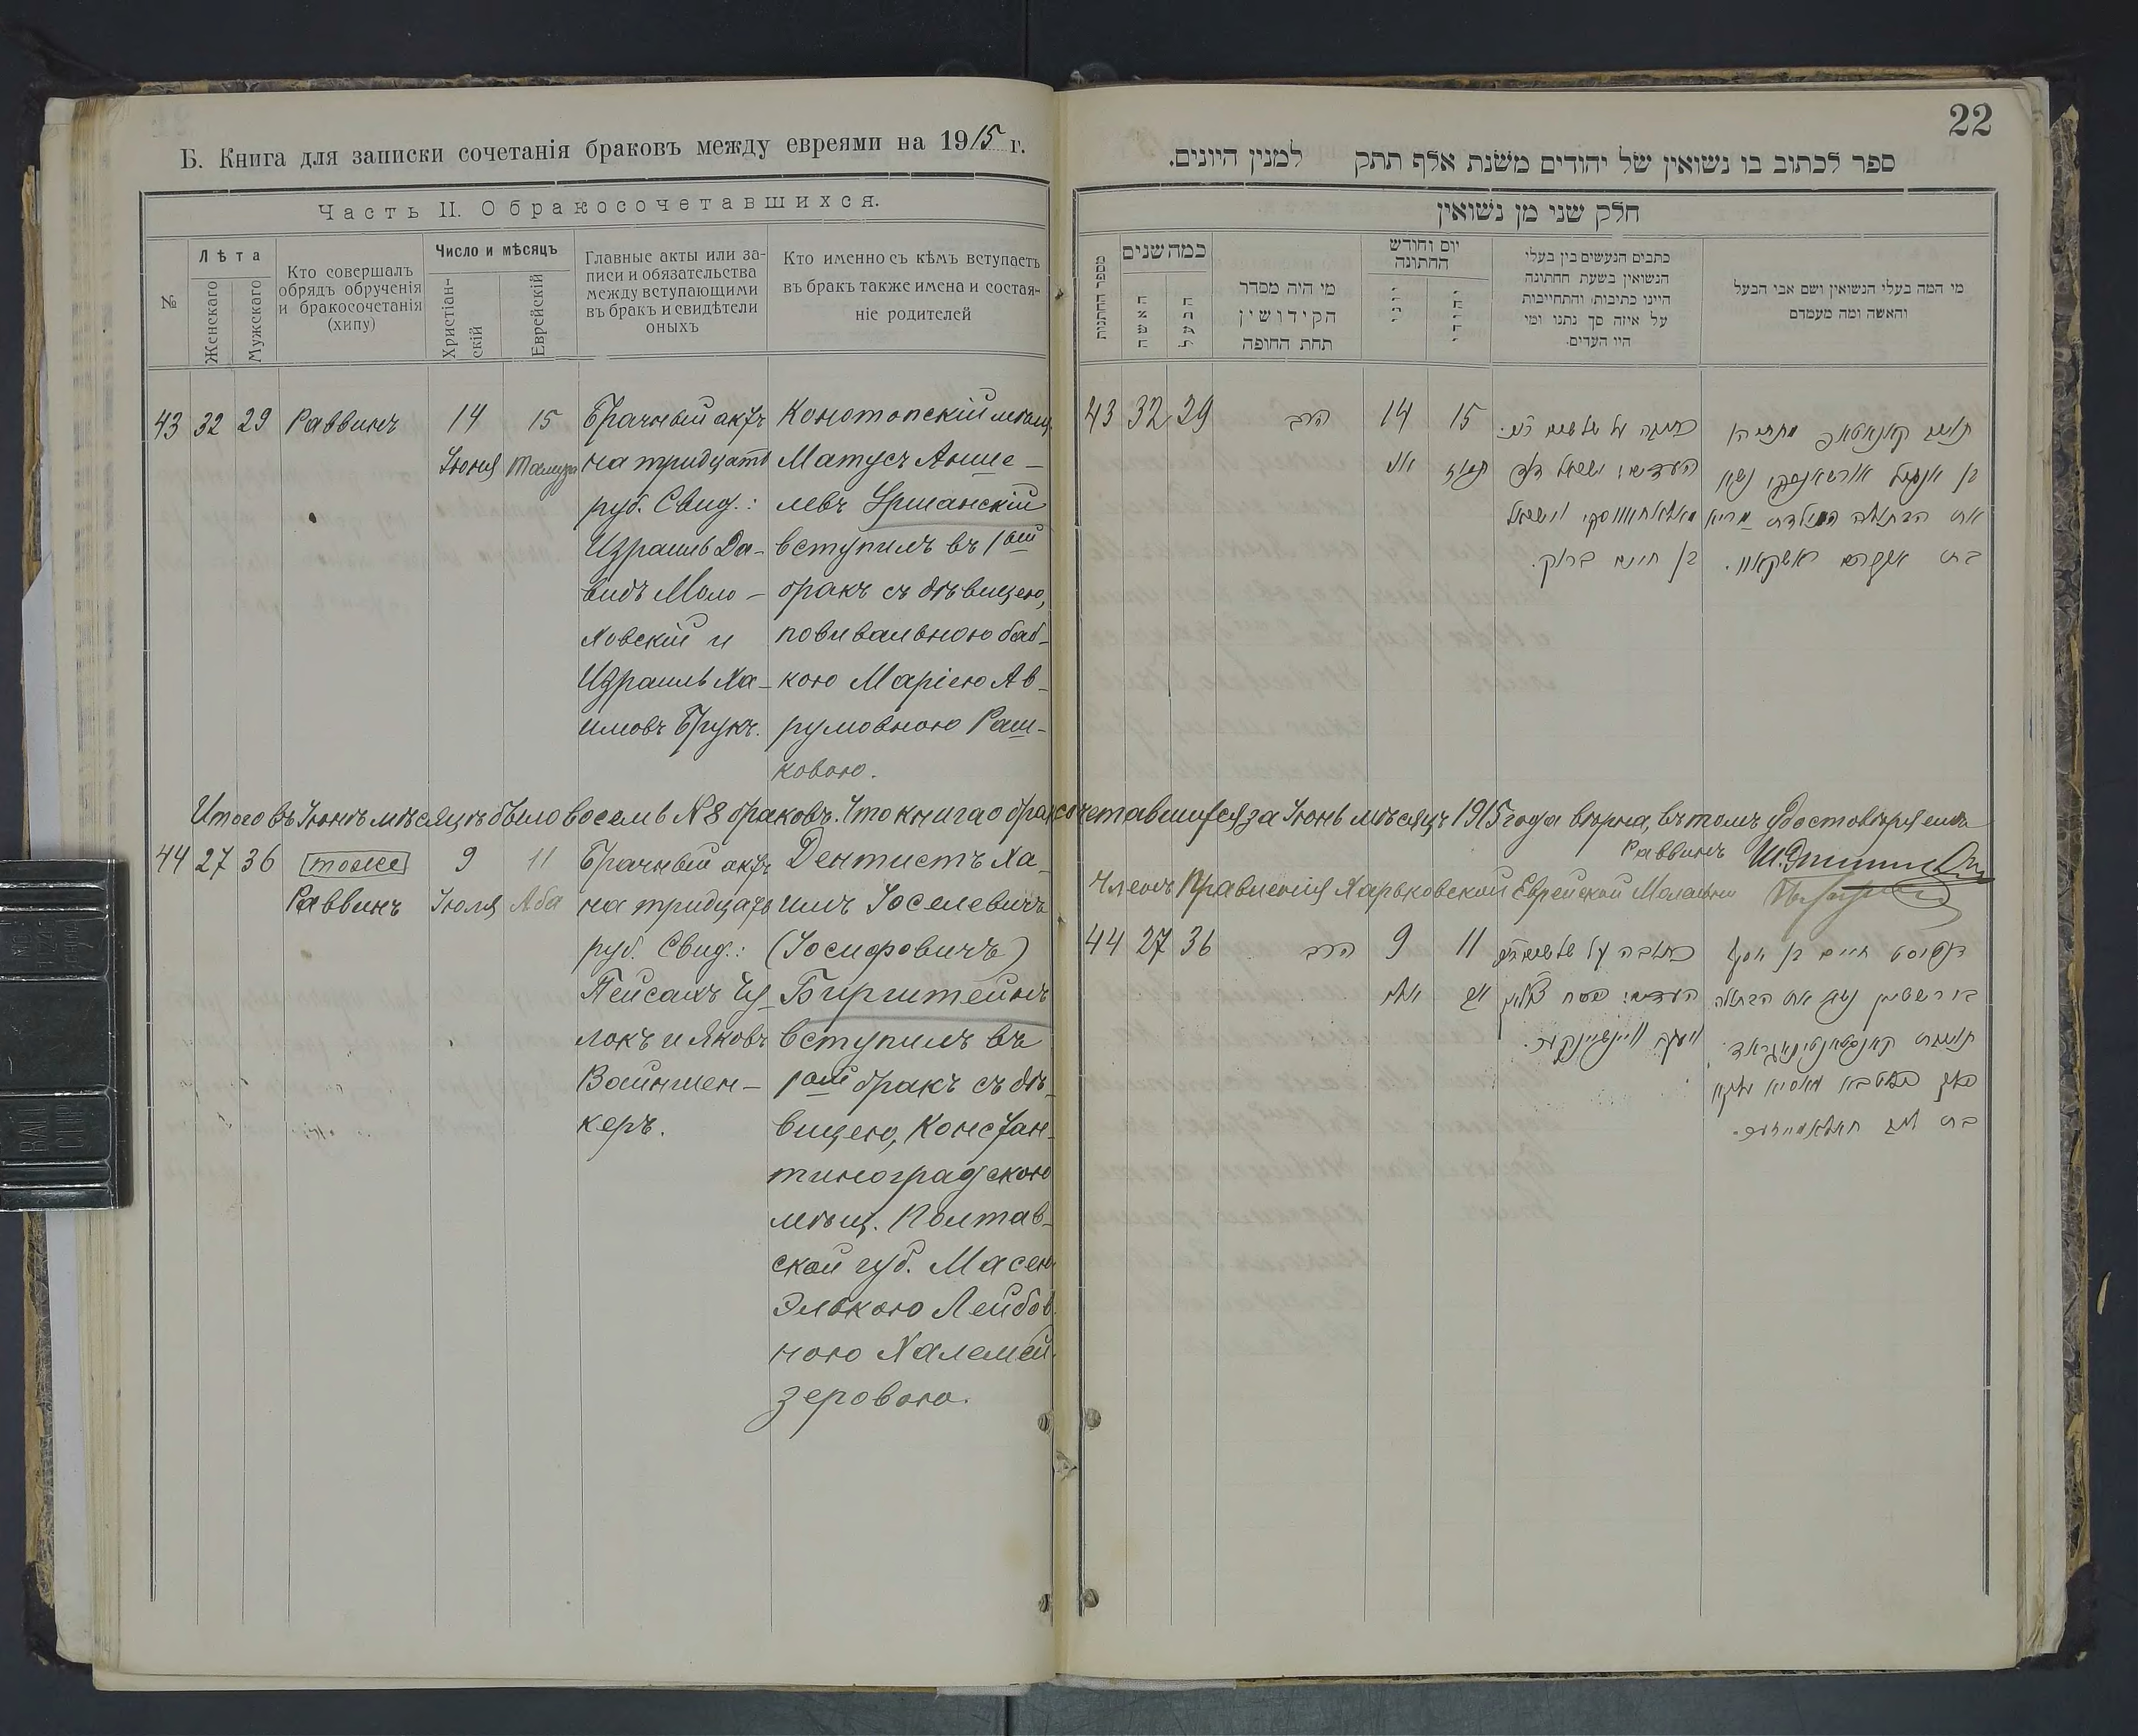 Б. Книга для записки сочетанія браковъ между евреями на 1915 г.
Часть II. О бракосочетавшихся.
№
Лѣта
Женскаго
Мужскаго
Кто совершалъ
обрядъ обрученія
и бракосочетанія
(хипу)
Число и мѣсяцъ
Христіан-
скій
Еврейскій
Главные акты или за-
писи и обязательства
между вступающими
въ бракъ и свидѣтели
оныхъ
Кто именно съ кѣмъ вступаетъ
въ бракъ также имена и состоя-
ніе родителей
43 32 29 Раввинъ
14
Іюня
15
Тамуза
Брачный актъ
на тридцать
руб. Свид.:
Израиль Да-
видъ Мало-
ховскій и
Израиль Ха-
имовъ Брукъ.
Конотопскій мѣщ.
Матусъ Анше-
левъ Уршанскій
вступилъ въ 1ый
бракъ съ дѣвицею,
повивальною баб-
кою Маріею Ав-
румовною Раш-
ковою.
Итого въ Іюнѣ мѣсяцѣ было восемь № 8 браковъ. Что книга о бракосочетавшихся за Іюнь мѣсяцъ 1915 года вѣрна, въ томъ удостовѣряемъ
Раввинъ
Членъ Правленія Харьковской Еврейской Молельни
44 27 36 тоже
Раввинъ
9
Іюля
11
Аба
Брачный актъ
на тридцать
руб. Свид.:
Пейсахъ
и Яковъ
Вайншен-
керъ.
Дентистъ Ха-
имъ Іоселевичъ
(Іосифовичъ)
Биргштейнъ
вступилъ въ
1ый бракъ съ дѣ-
вицею, Констан-
тиноградскою
мѣщ. Полтав-
ской губ. Масею
Элькою Лейбов-
ною Халемей-
зеровою.
22
ספר לכתוב בו נשואין של יהודים משנת אלף תתק למנין היונים.
חלק שני מן נשואין
מספר החתונות
כמה שנים
האשה
הבעל
מי היה מסדר
הקידושין
תחת החופה
יום וחודש
החתונה
יוני
יהודי
כתבים הנעשים בין בעלי
הנשואין בשעת החתונה
היינו כתיבות והתחייבות
על איזה סך נתנו ומי
היו העדים.
מי המה בעלי הנשואין ושם אבי הבעל
והאשה ומה מעמדם
43 32 29
הרב
14
יוני
15
תמוז
כתובה על שלשים רו"כ.
העדים: ישראל דוד
וישראל
בן חיים ברוק.
בן אנשיל אורשאנסקי נשא
את הבתולה המילדת מריא
בת אברהם ראשקאוו.
44 27 36
הרב
9
יולי
11
אב
כתובה על שלשים רו"כ
העדים: פסח
ויעקב וויינשיינקער.
דנטיסט חיים בן יוסף
בירשטיין נשא את הבתולה